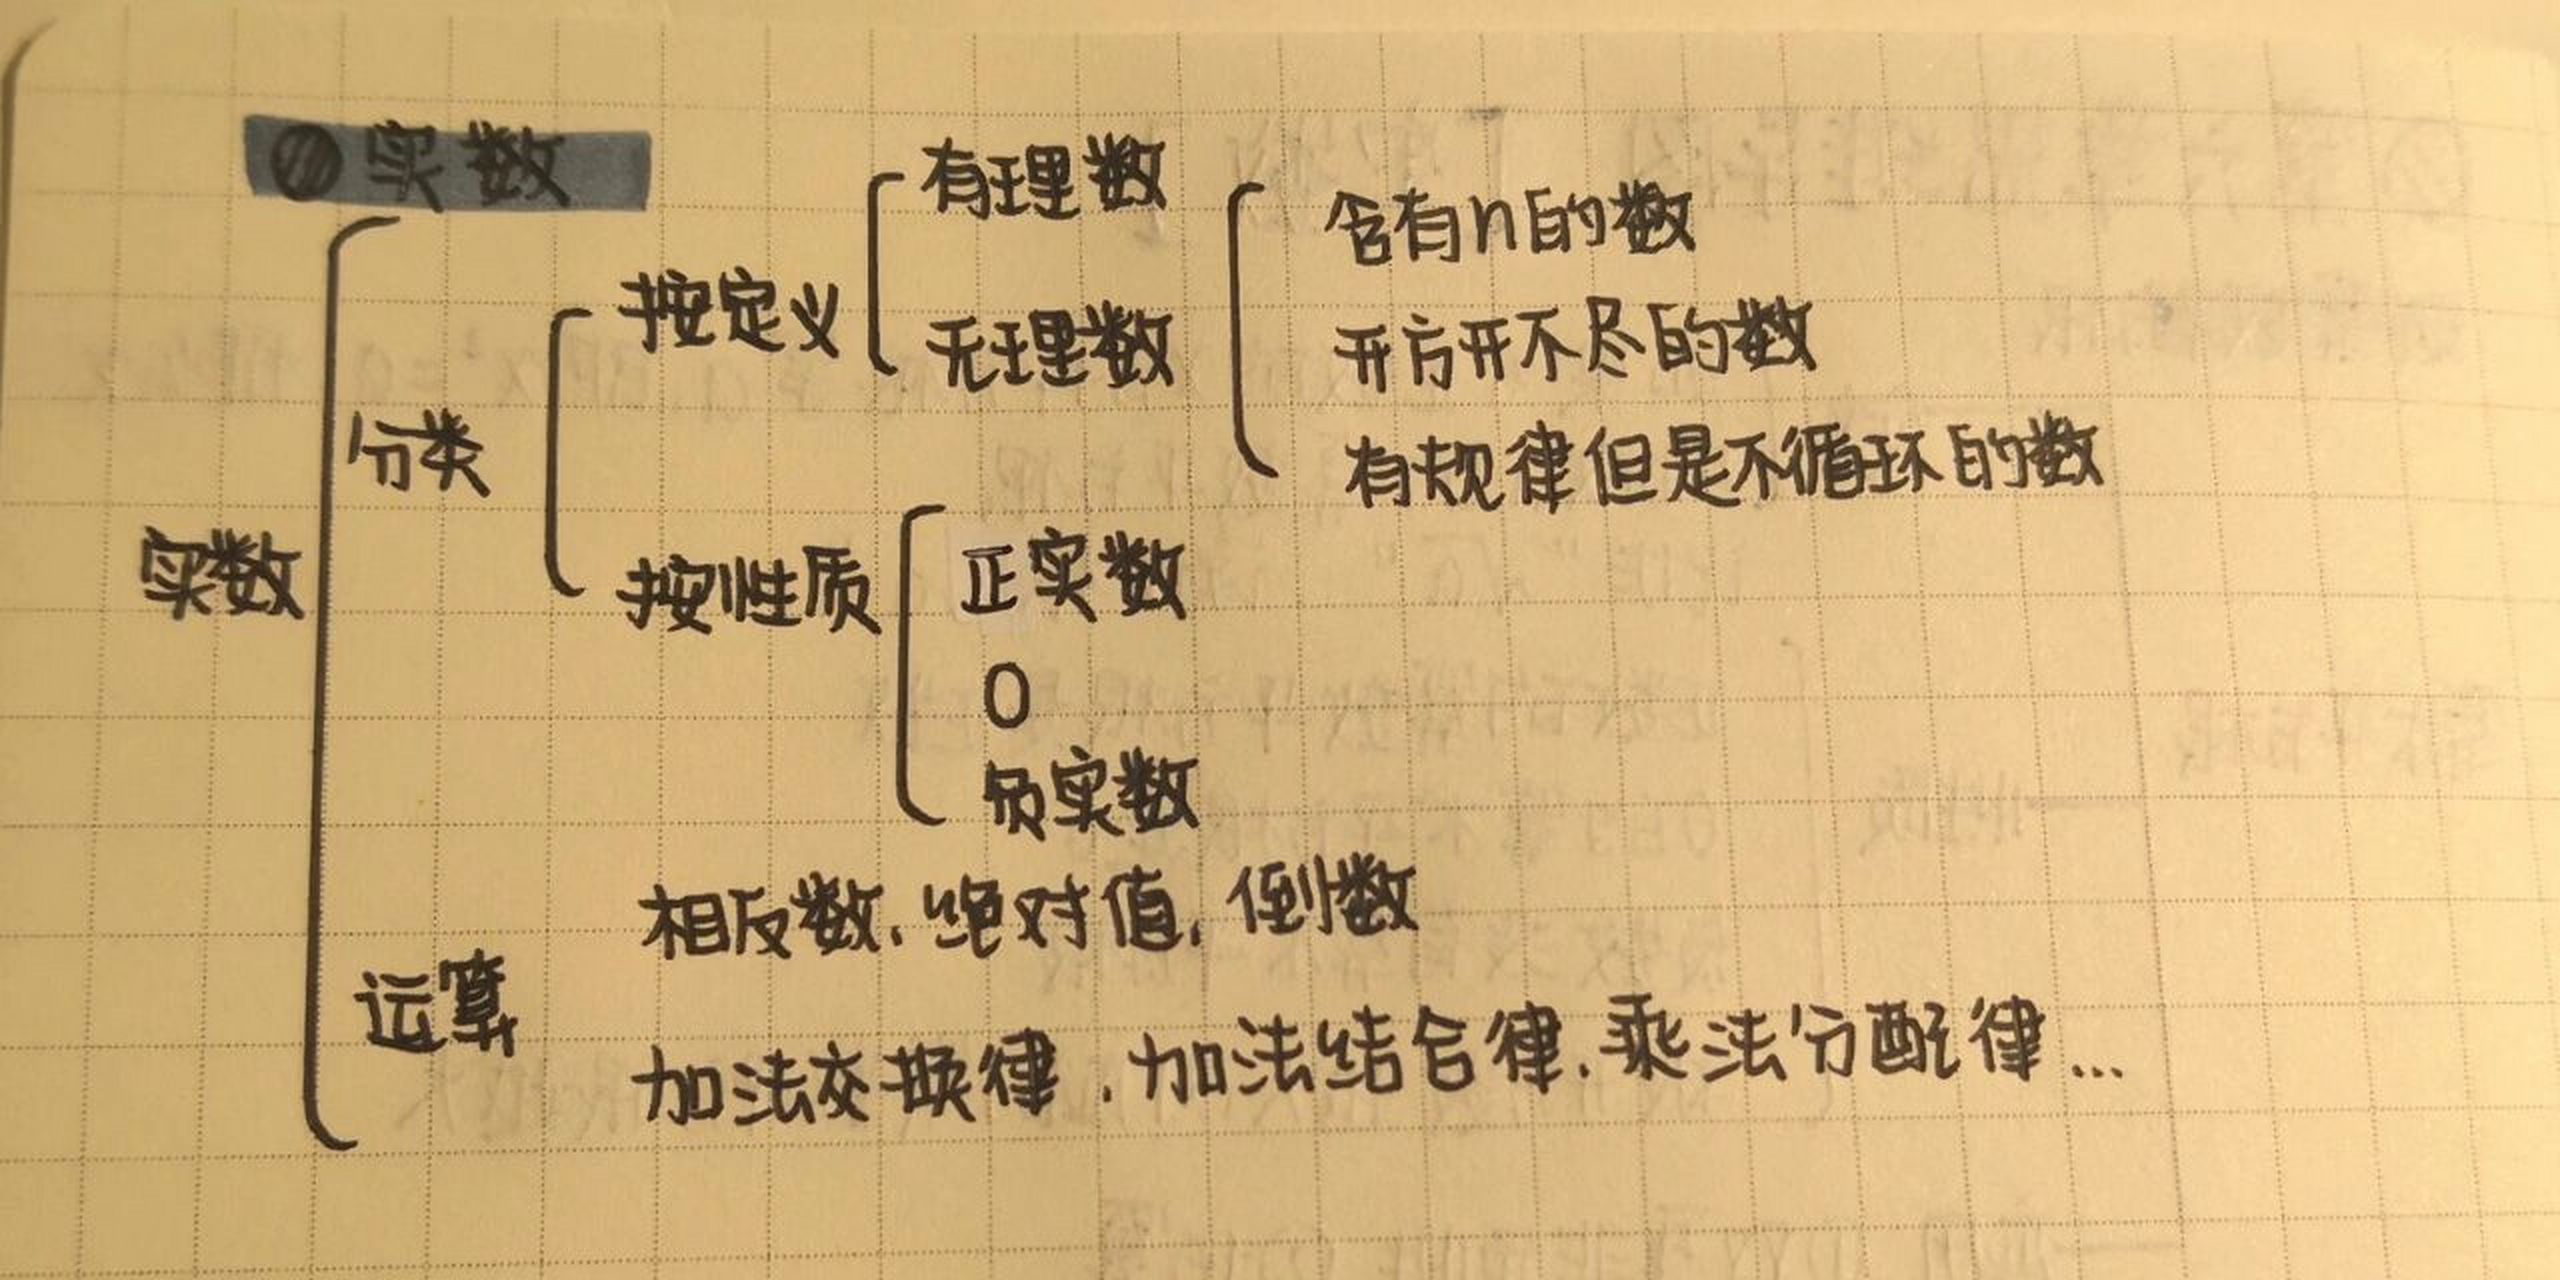 实数
有理数
含有n的数
按定义
无理数
开方开不尽的数
分类
有规律但是不循环的数
实数
按性质
正实数
0
负实数
相反数、绝对值、倒数
运算
加法交换律、加法结合律、乘法分配律...